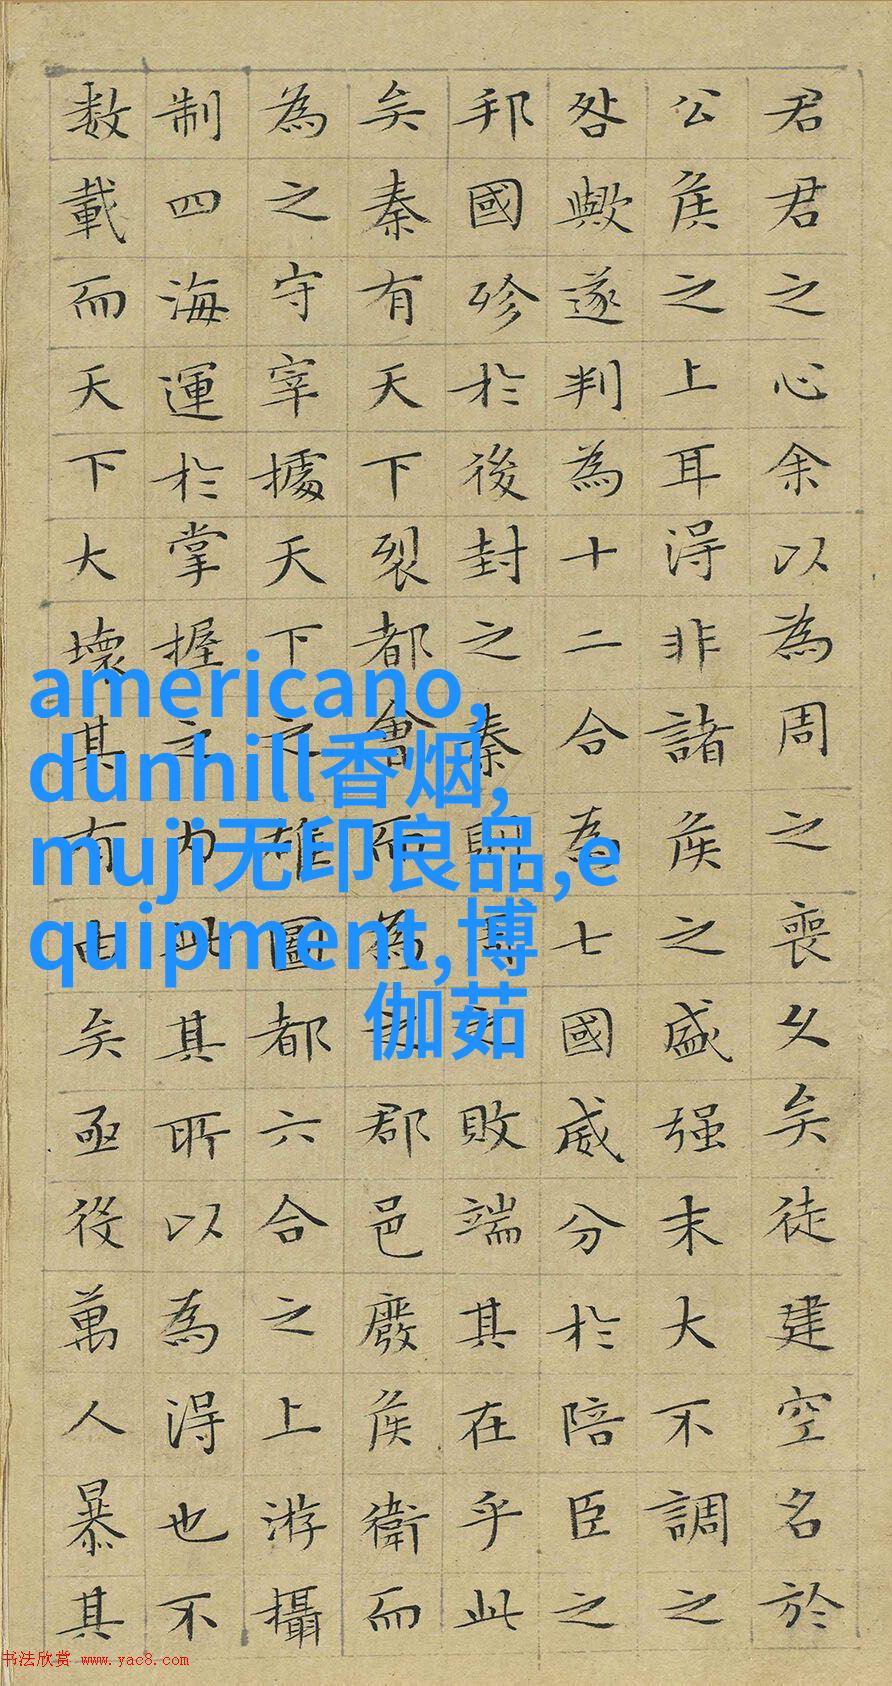 君君之心余以為周之喪久矣徒建空名於
公侯之上耳得非諸侯之盛强末大不調之
咎歟遂判為十二合為七國威分於陪臣之
邦國殄於後封之秦則之敗端其在乎此
矣秦有天下裂都會而為之郡邑廢侯衛而
為之守宰據天下之雄圖都六合之上游攝
制四海運於掌握之內此其所以為得也不
数載而天下大壞其有由矣亟役萬人暴其
americano,
dunhill香烟,
muji无印良品,e
quipment,博
伽茹
书法欣赏 www.yac8.com